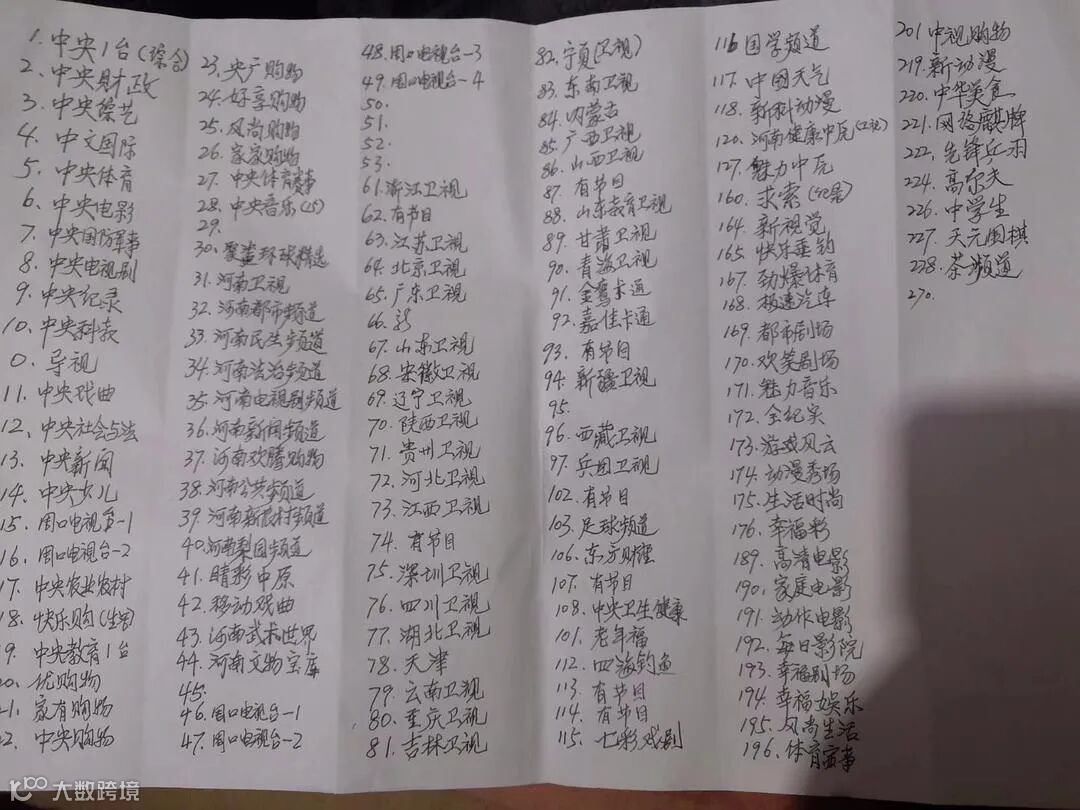 1. 中央1台(综合)
2. 中央财政
3. 中央综艺
4. 中文国际
5. 中央体育
6. 中央电影
7. 中央国防军事
8. 中央电视剧
9. 中央纪录
10. 中央科教
0. 导视
11. 中央戏曲
12. 中央社会与法
13. 中央新闻
14. 中央少儿
15. 周口电视台-1
16. 周口电视台-2
17. 中央农业农村
18. 快乐购(生活)
19. 中央教育1台
20. 优购物
21. 家有购物
22. 中央购物
23. 央广购物
24. 好享购物
25. 风尚购物
26. 家家购物
27. 中央体育赛事
28. 中央音乐(15)
29.
30. 聚鲨环球精选
31. 河南卫视
32. 河南都市频道
33. 河南民生频道
34. 河南法治频道
35. 河南电视剧频道
36. 河南新闻频道
37. 河南欢腾购物
38. 河南公共频道
39. 河南新农村频道
40. 河南梨园频道
41. 睛彩中原
42. 移动戏曲
43. 河南武术世界
44. 河南文物宝库
45.
46. 周口电视台-1
47. 周口电视台-2
48. 周口电视台-3
49. 周口电视台-4
50.
51.
52.
53.
61. 浙江卫视
62. 有节目
63. 江苏卫视
64. 北京卫视
65. 广东卫视
66.
67. 山东卫视
68. 安徽卫视
69. 辽宁卫视
70. 陕西卫视
71. 贵州卫视
72. 河北卫视
73. 江西卫视
74. 有节目
75. 深圳卫视
76. 四川卫视
77. 湖北卫视
78. 天津
79. 云南卫视
80. 重庆卫视
81. 吉林卫视
82. 宁夏(卫视)
83. 东南卫视
84. 内蒙古
85. 广西卫视
86. 山西卫视
87. 有节目
88. 山东教育卫视
89. 甘肃卫视
90. 青海卫视
91. 金鹰卡通
92. 嘉佳卡通
93. 有节目
94. 新疆卫视
95.
96. 西藏卫视
97. 兵团卫视
102. 有节目
103. 足球频道
106. 东方财经
107. 有节目
108. 中央卫生健康
101. 老年福
112. 四海钓鱼
113. 有节目
114. 有节目
115. 七彩戏剧
116 国学频道
117. 中国天气
118. 新科动漫
120. 河南健康中原(卫视)
127. 魅力中原
160. 求索(记录)
164. 新视觉
165. 快乐垂钓
167. 劲爆体育
168. 极速汽车
169. 都市剧场
170. 欢笑剧场
171. 魅力音乐
172. 全纪实
173. 游戏风云
174. 动漫秀场
175. 生活时尚
176. 幸福彩
189. 高清电影
190. 家庭电影
191. 动作电影
192. 每日影院
193. 幸福剧场
194. 幸福娱乐
195. 风尚生活
196. 体育赛事
201 中视购物
219. 新动漫
220. 中华美食
221. 网络棋牌
222. 先锋乒羽
224. 高尔夫
226. 中学生
227. 天元围棋
228. 茶频道
270.
大数跨境